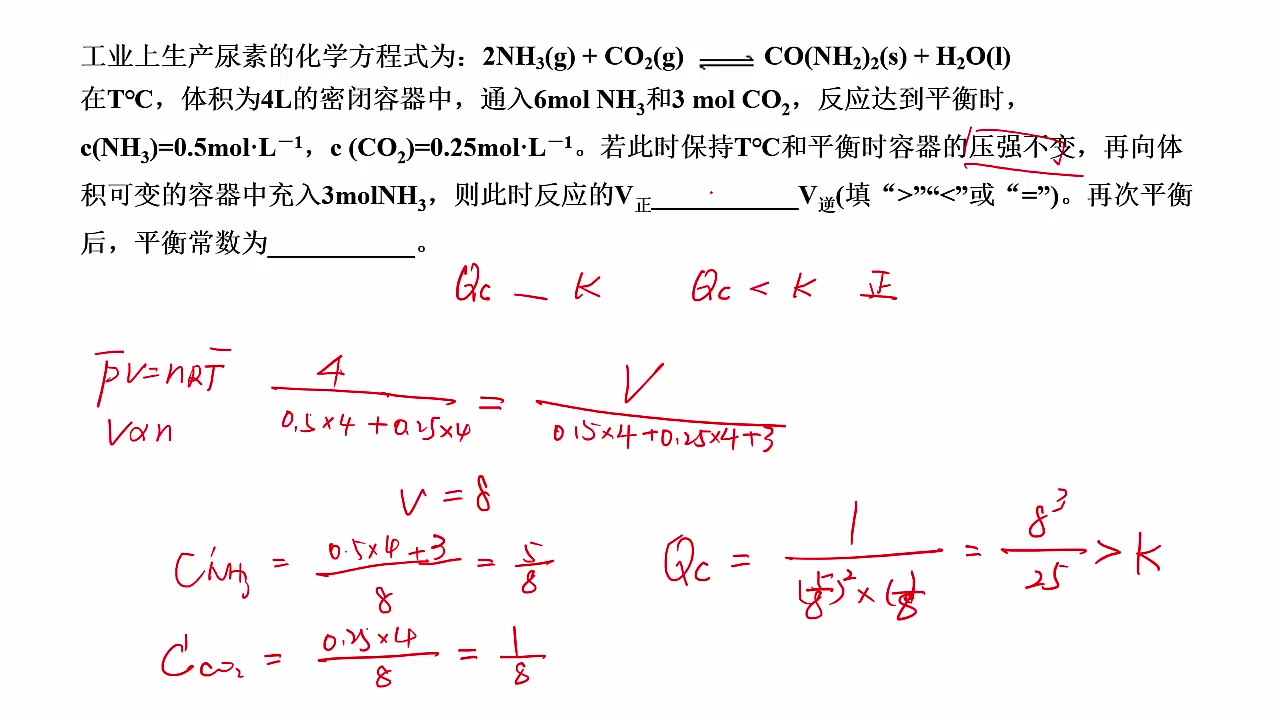 工业上生产尿素的化学方程式为：2NH₃(g) + CO₂(g) ⇌ CO(NH₂)₂(s) + H₂O(l)
在T℃，体积为4L的密闭容器中，通入6mol NH₃和3 mol CO₂，反应达到平衡时，
c(NH₃)=0.5mol·L⁻¹，c (CO₂)=0.25mol·L⁻¹。若此时保持T℃和平衡时容器的压强不变，再向体
积可变的容器中充入3molNH₃，则此时反应的V正___________V逆(填“>”“<”或“=”)。再次平衡
后，平衡常数为___________。
Qc — K Qc < K 正
pV=nRT 4/(0.5×4+0.25×4) = V/(0.5×4+0.25×4+3)
V∝n
V = 8
C'NH₃ = (0.5×4+3)/8 = 5/8 Qc = 1/((5/8)²×(1/8)) = 8³/25 > K
C'CO₂ = (0.25×4)/8 = 1/8